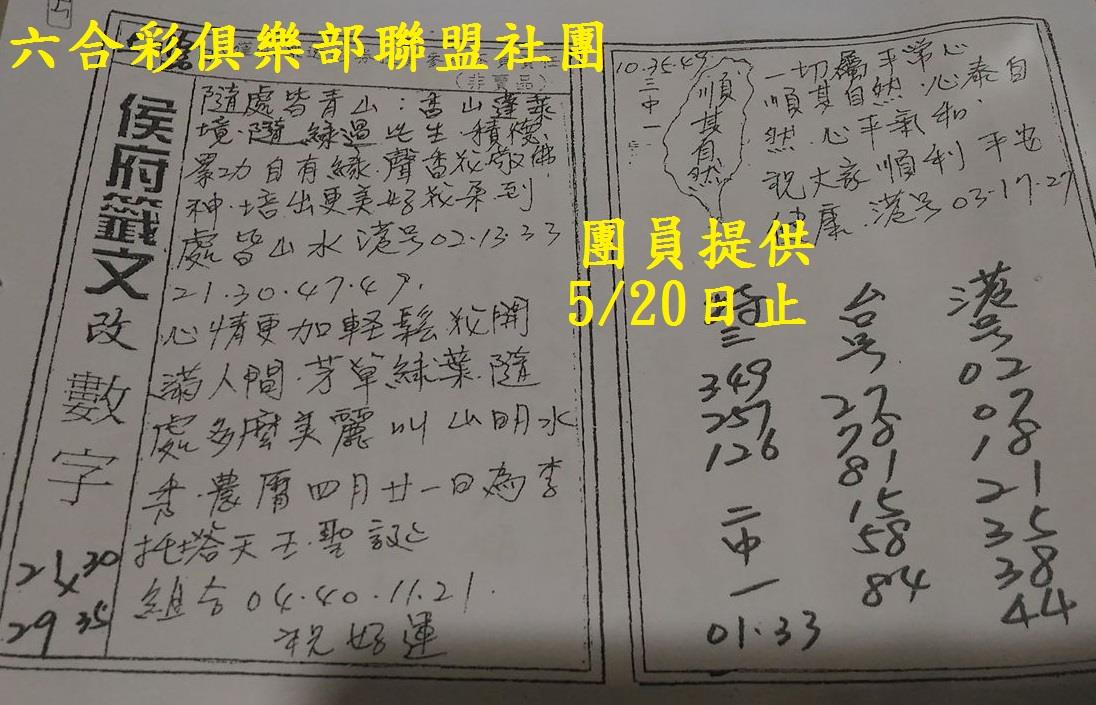 六合彩俱樂部聯盟社團
(非賣品)
侯府籤文改數字
21 30
29 35
隨處皆青山:高山蓬萊
境.隨緣過此生.積德
累功自有緣.聲香花敬佛
神.培出更美好花朵到
處皆山水港号02.13.33
21.30.47.49.
心情更加輕鬆花開
滿人間.芳草綠葉.隨
處多麼美麗叫山明水
秀.農曆四月廿一日為李
托塔天王.聖誕
組合04.40.11.21.
祝好運
10.35.49
三中一
順其自然
一切屬平常心
順其自然.心泰自
然.心平氣和.
祝大家順利平安
健康.港号03.17.27
團員提供
5/20日止
特三
349
257
126
二中一
01.33
台号
27
78
81
15
58
84
港号
02
07
18
21
35
38
44